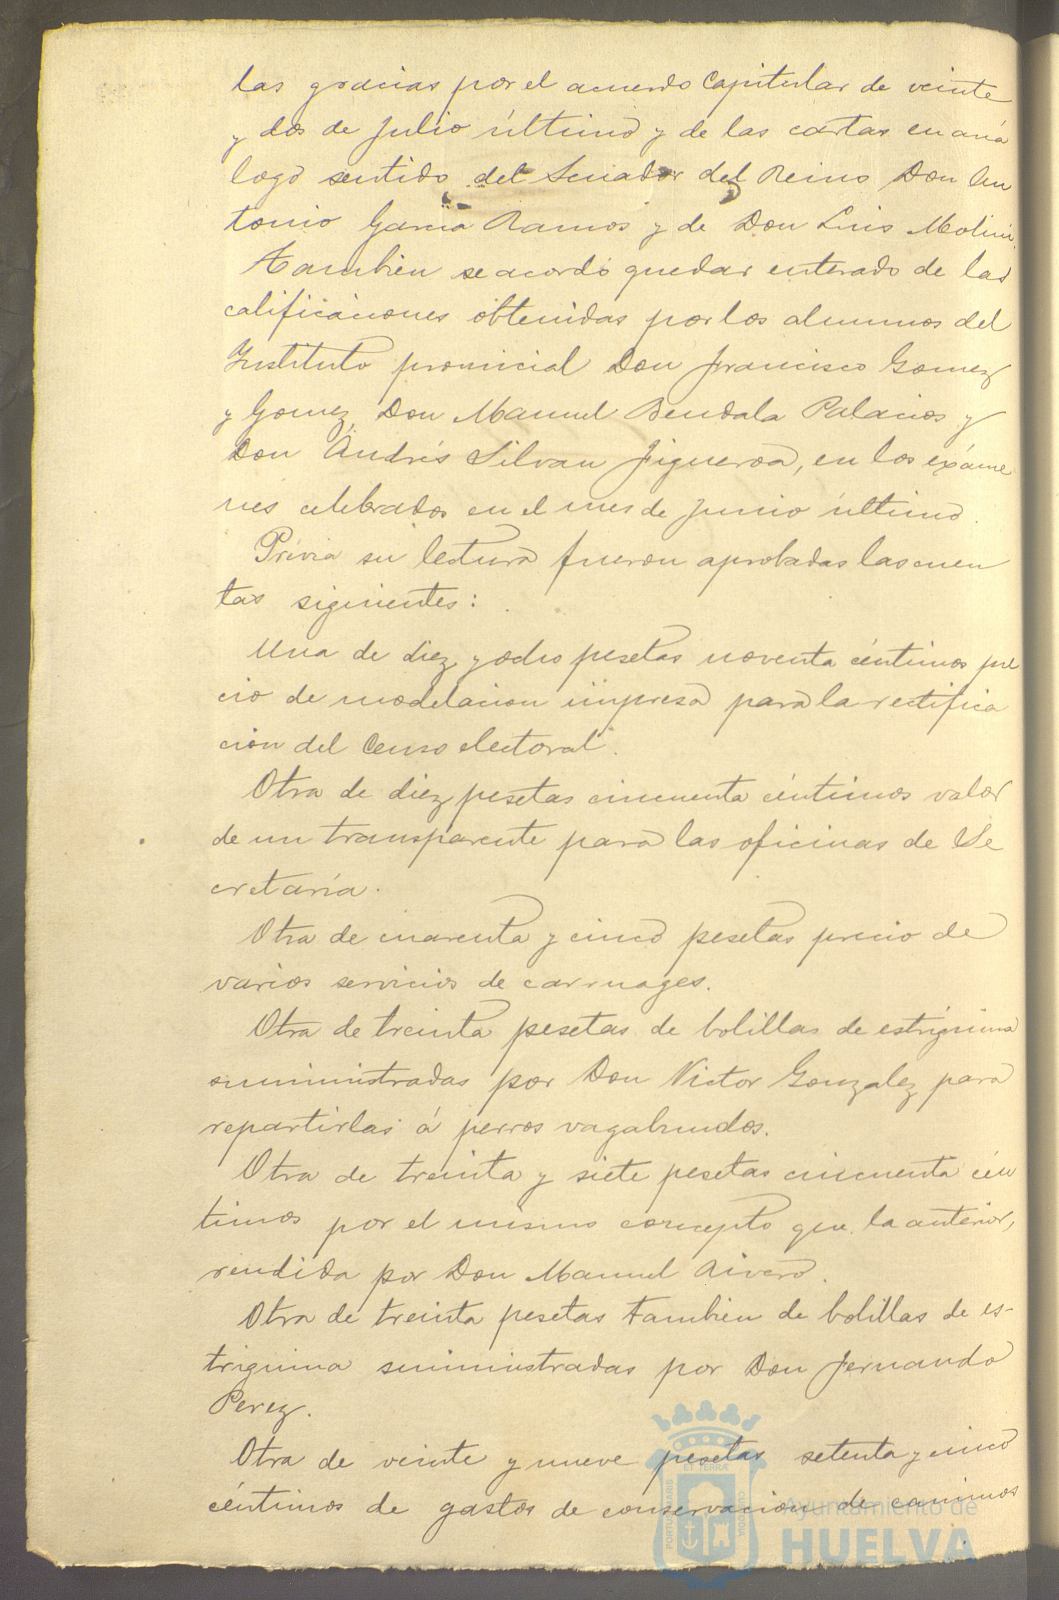 las gracias por el acuerdo Capitular de veinte
y dos de Julio último y de las cartas en aná
logo sentido del Senador del Reino Don An
tonio Garcia Ramos y de Don Luis Molini.
Tambien se acordó quedar enterado de las
calificaciones obtenidas por los alumnos del
Instituto provincial Don Francisco Gomez
y Gomez, Don Manuel Bendala Palacios y
Don Andrés Silvan Figueroa, en los exáme
nes celebrados en el mes de Junio último.
Prévia su lectura fueron aprobadas las cuen
tas siguientes:
Una de diez y ocho pesetas noventa céntimos pre
cio de modelacion impresa para la rectifica
cion del Censo electoral.
Otra de diez pesetas cincuenta céntimos valor
de un transparente para las oficinas de Se
cretaría.
Otra de cuarenta y cinco pesetas precio de
varios servicios de carruages.
Otra de treinta pesetas de bolillas de estriguina
suministradas por Don Victor Gonzalez para
repartirlas á perros vagabundos.
Otra de treinta y siete pesetas cincuenta cén
timos por el mismo concepto que la anterior,
rendida por Don Manuel
Otra de treinta pesetas tambien de bolillas de es-
triguina suministradas por Don Fernando
Perez.
Otra de veinte y nueve pesetas setenta y cinco
céntimos de gastos de conservacion de caminos
Ayuntamiento de
HUELVA